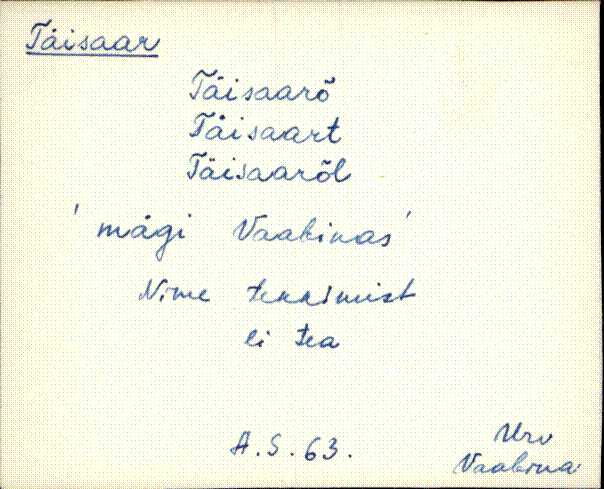 Täisaar
Täisaarõ
Täisaart
Täisaarõl
'mägi Vaabinas'
Nime tekkimist
ei tea
A.S. 63.
Urv
Vaabina